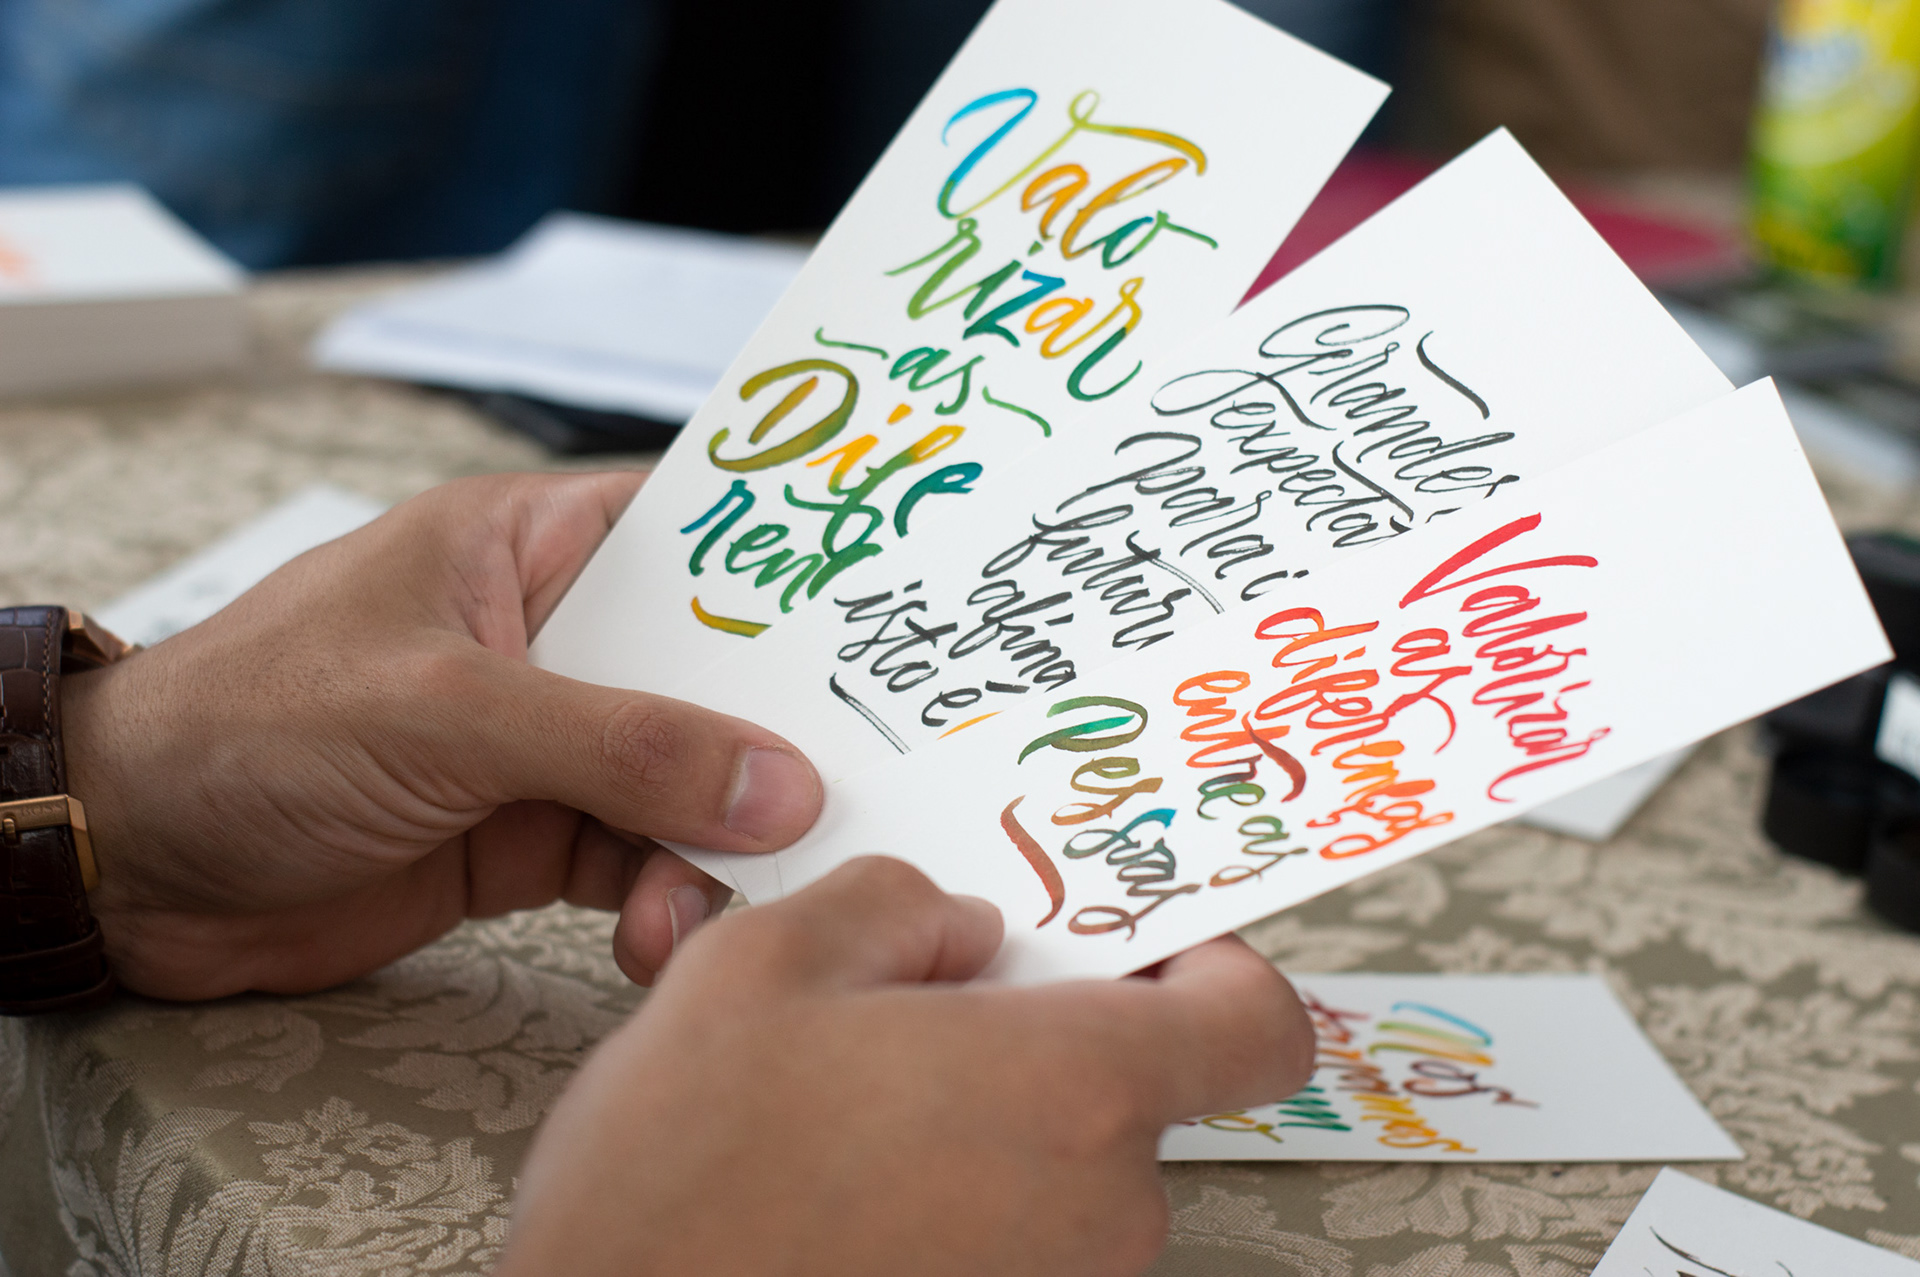 Valo
rizar
as
Dife
ren
Grandes
expecta
para
futur
afina
isto é
Valorizar
as
diferenças
entre as
Pessoas